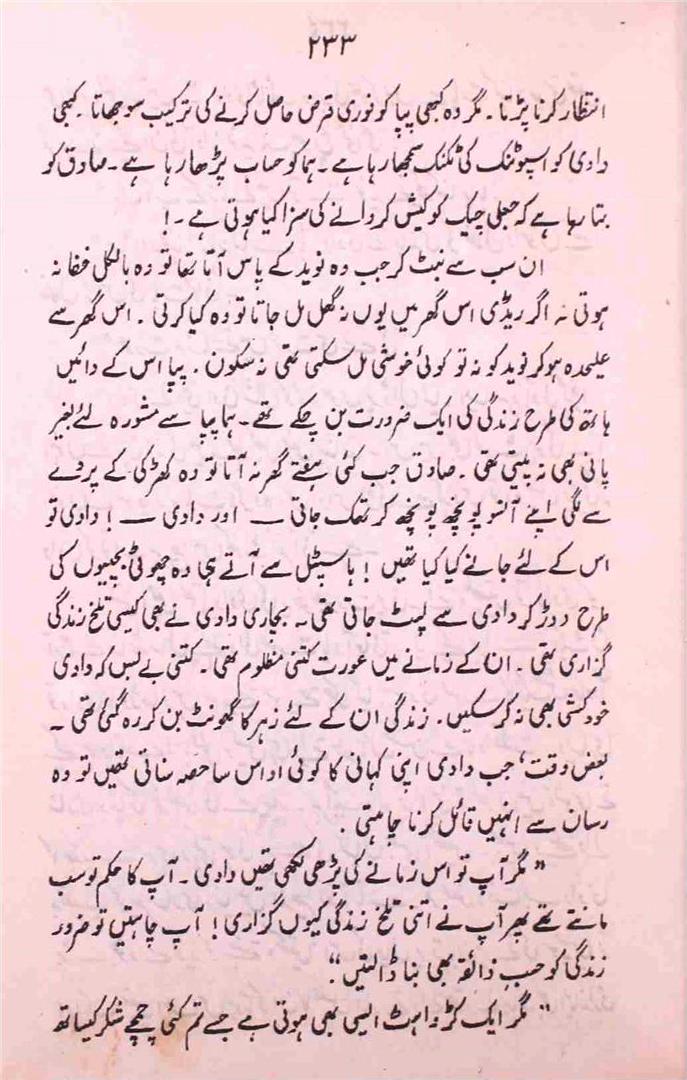 ۲۳۳
انتظار کرنا پڑتا۔ مگر وہ کبھی پپا کو فوری قرض حاصل کرنے کی ترکیب سوجھاتا۔ کبھی
دادی کو اسپوٹنک کی ٹکنک سمجھا رہا ہے۔ ہما کو حساب پڑھا رہا ہے۔ صادق کو
بتا رہا ہے کہ جعلی چیک کو کیش کروانے کی سزا کیا ہوتی ہے۔!
ان سب سے نبٹ کر جب وہ نوید کے پاس آتا تھا تو وہ بالکل خفا نہ
ہوتی نہ اگر ریڈی اس گھر میں یوں نہ گھل مل جاتا تو وہ کیا کرتی۔ اس گھر سے
علیحدہ ہو کر نوید کو نہ تو کوئی خوشی مل سکتی تھی نہ سکون۔ پپا اس کے دائیں
ہاتھ کی طرح زندگی کی ایک ضرورت بن چکے تھے۔ ہما پپا سے مشورہ لئے بغیر
پانی بھی نہ پیتی تھی۔ صادق جب کئی ہفتے گھر نہ آتا تو وہ کھڑکی کے پردے
سے لگی اپنے آنسو پونچھ پونچھ کر تھک جاتی — اور دادی —! دادی تو
اس کے لئے جانے کیا کیا تھیں! ہاسپٹل سے آتے ہی وہ چھوٹی بچیوں کی
طرح دوڑ کر دادی سے لپٹ جاتی تھی۔ بچاری دادی نے بھی کیسی تلخ زندگی
گزاری تھی۔ ان کے زمانے میں عورت کتنی مظلوم تھی۔ کتنی بے بس کہ دادی
خودکشی بھی نہ کر سکیں۔ زندگی ان کے لئے زہر کا گھونٹ بن کر رہ گئی تھی۔
بعض وقت، جب دادی اپنی کہانی کا کوئی اداس سا حصہ سناتی تھیں تو وہ
رسان سے انہیں قائل کرنا چاہتی۔
”مگر آپ تو اس زمانے کی پڑھی لکھی تھیں دادی۔ آپ کا حکم تو سب
مانتے تھے پھر آپ نے اتنی تلخ زندگی کیوں گزاری! آپ چاہتیں تو ضرور
زندگی کو حسب ذائقہ بھی بنا ڈالتیں“۔
”مگر ایک کڑواہٹ ایسی بھی ہوتی ہے جسے تم کئی چمچے شکر کیساتھ